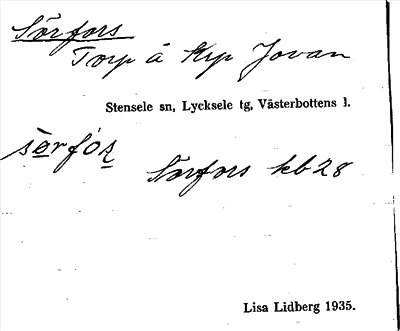 Sörfors
Torp å Krp Jovan
Stensele sn, Lycksele tg, Västerbottens l.
Sörfors kb 28
Lisa Lidberg 1935.